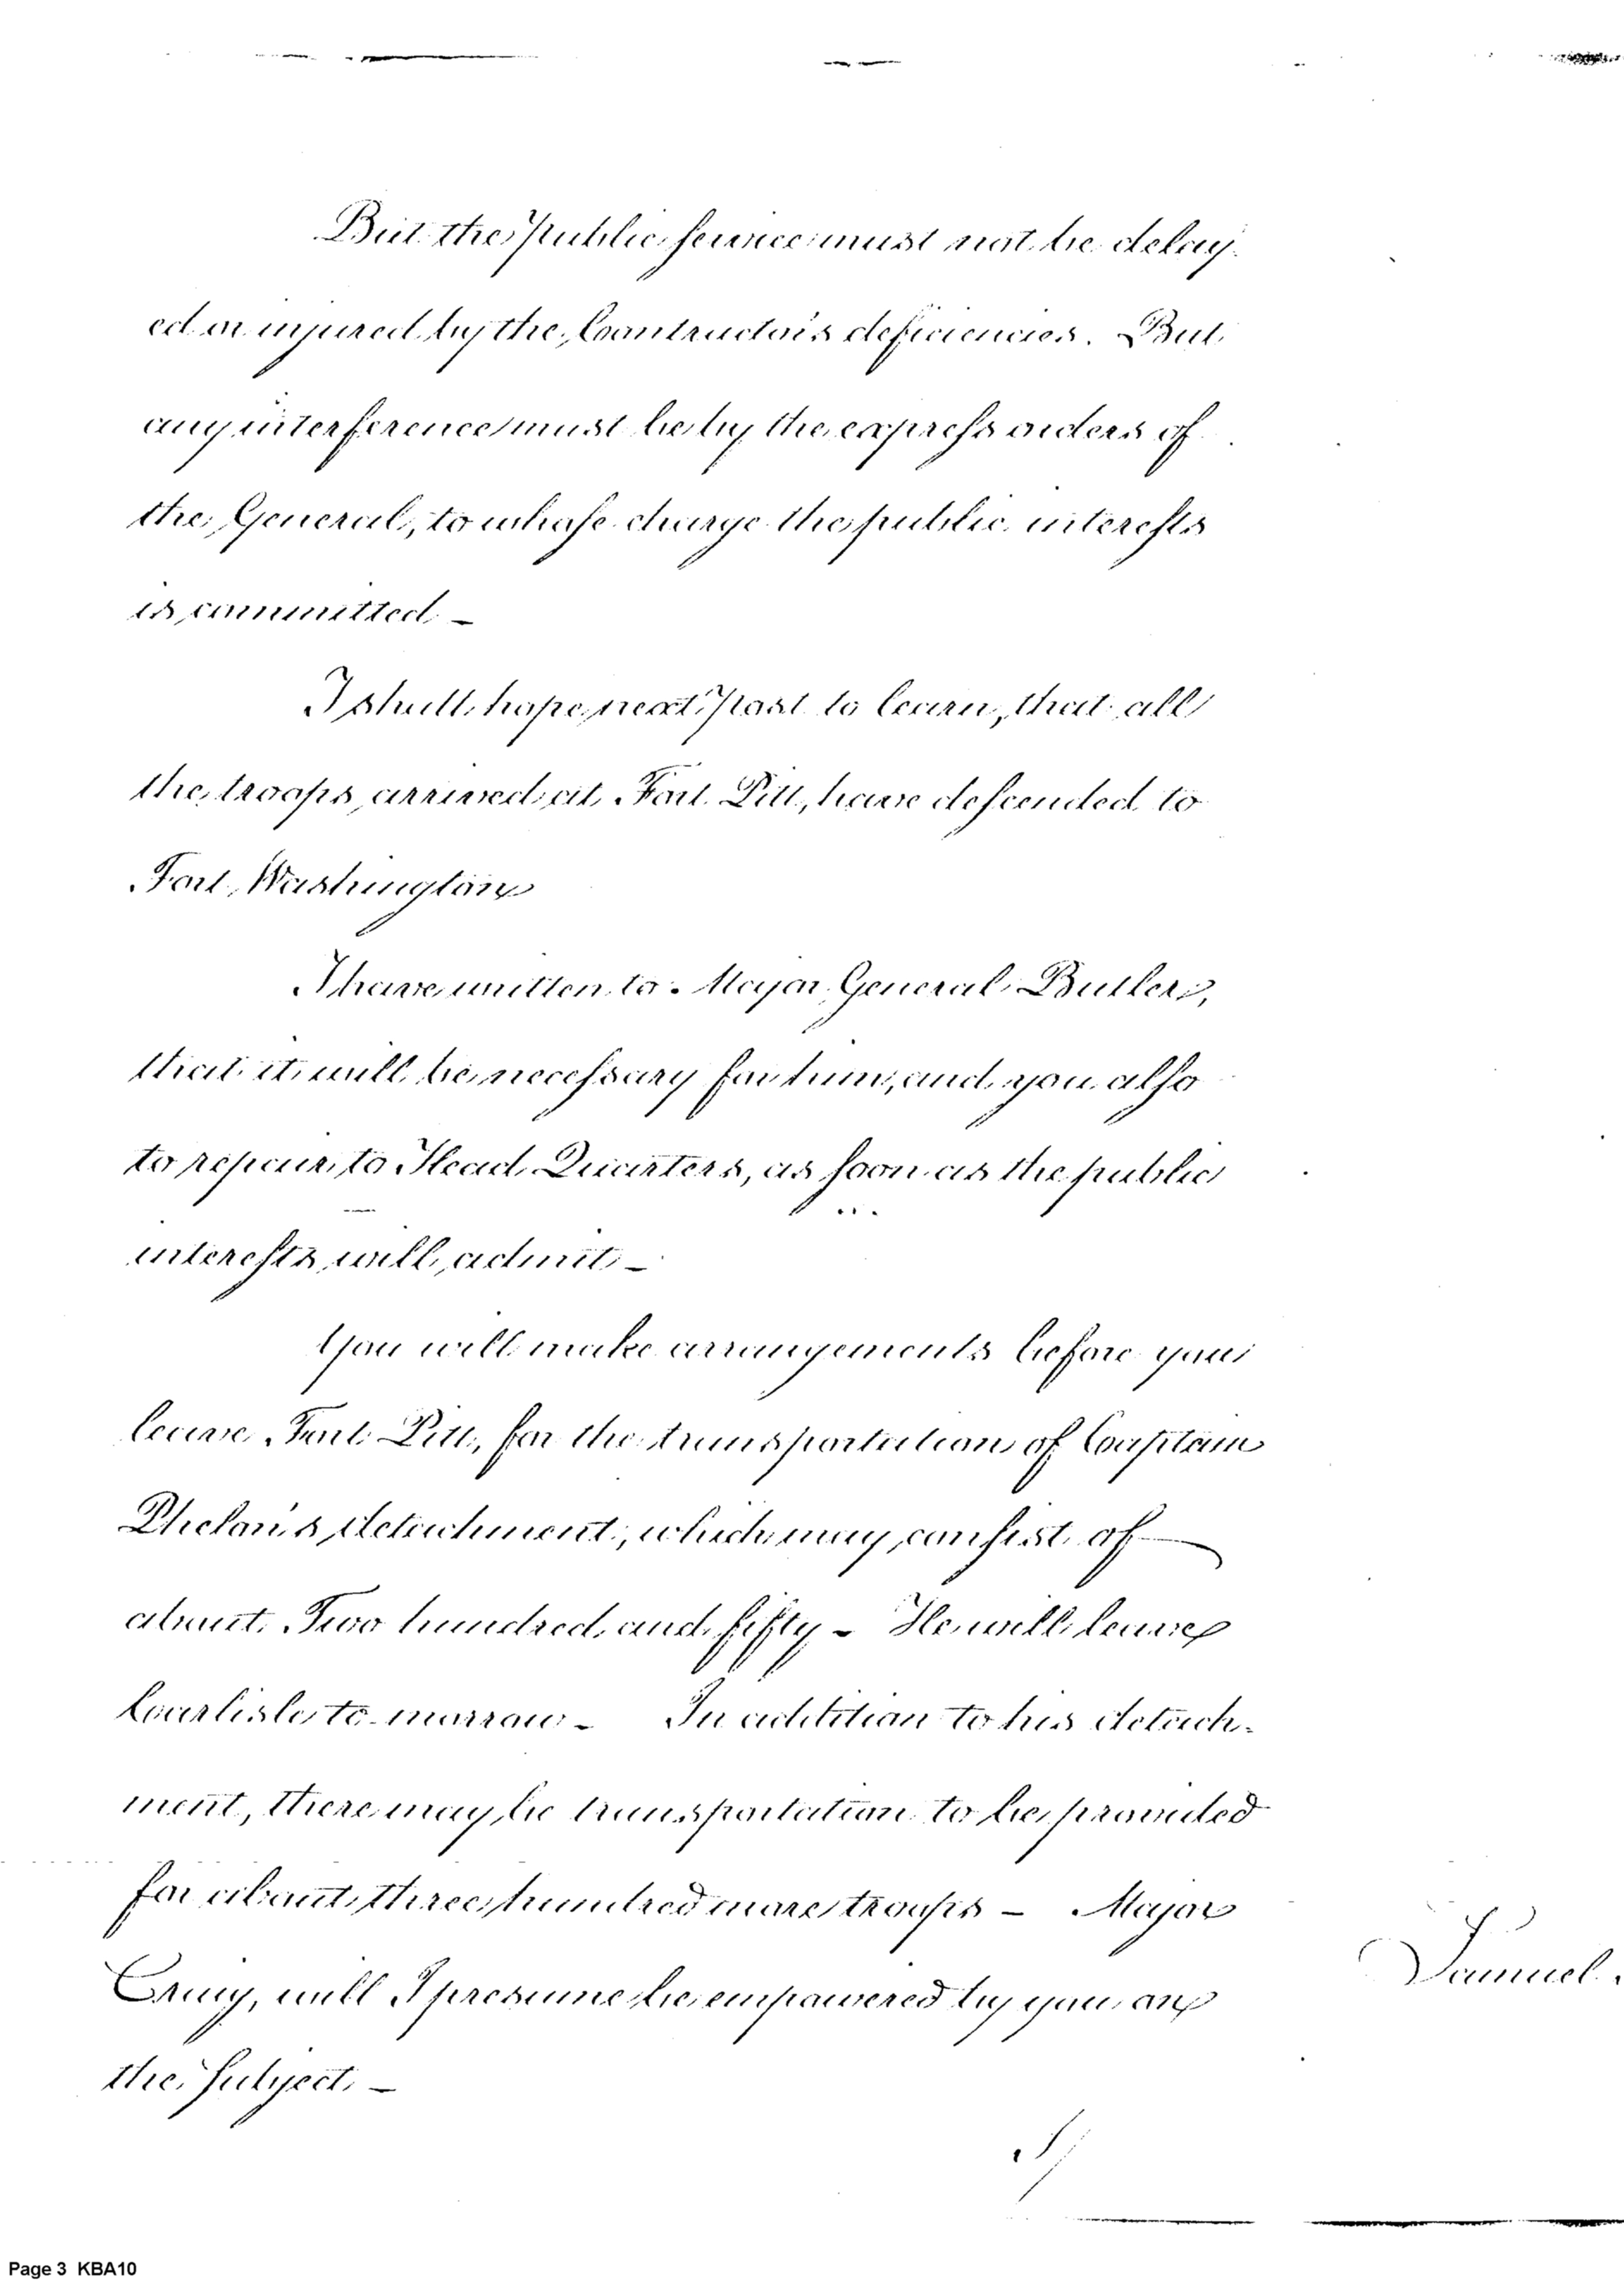 But the public service must not be delay-
ed or injured by the Contractor's deficiencies. But
any interference must be by the express orders of
the General, to whose charge the public interests
is committed –
I shall hope next post to learn, that all
the troops arrived at Fort Pitt, have descended to
Fort Washington
I have written to Major General Butler,
that it will be necessary for him, and you also
to repair to Head Quarters, as soon as the public
interests will admit –
You will make arrangements before you
leave Fort Pitt, for the transportation of Captain
Phelon's detachment, which may consist of
about Two hundred and fifty – He will leave
Carlisle to-morrow – In addition to his detach-
ment, there may be transportation to be provided
for about three hundred more troops – Major
Craig, will I presume be empowered by you on
the subject –
I
Samuel
Page 3 KBA10